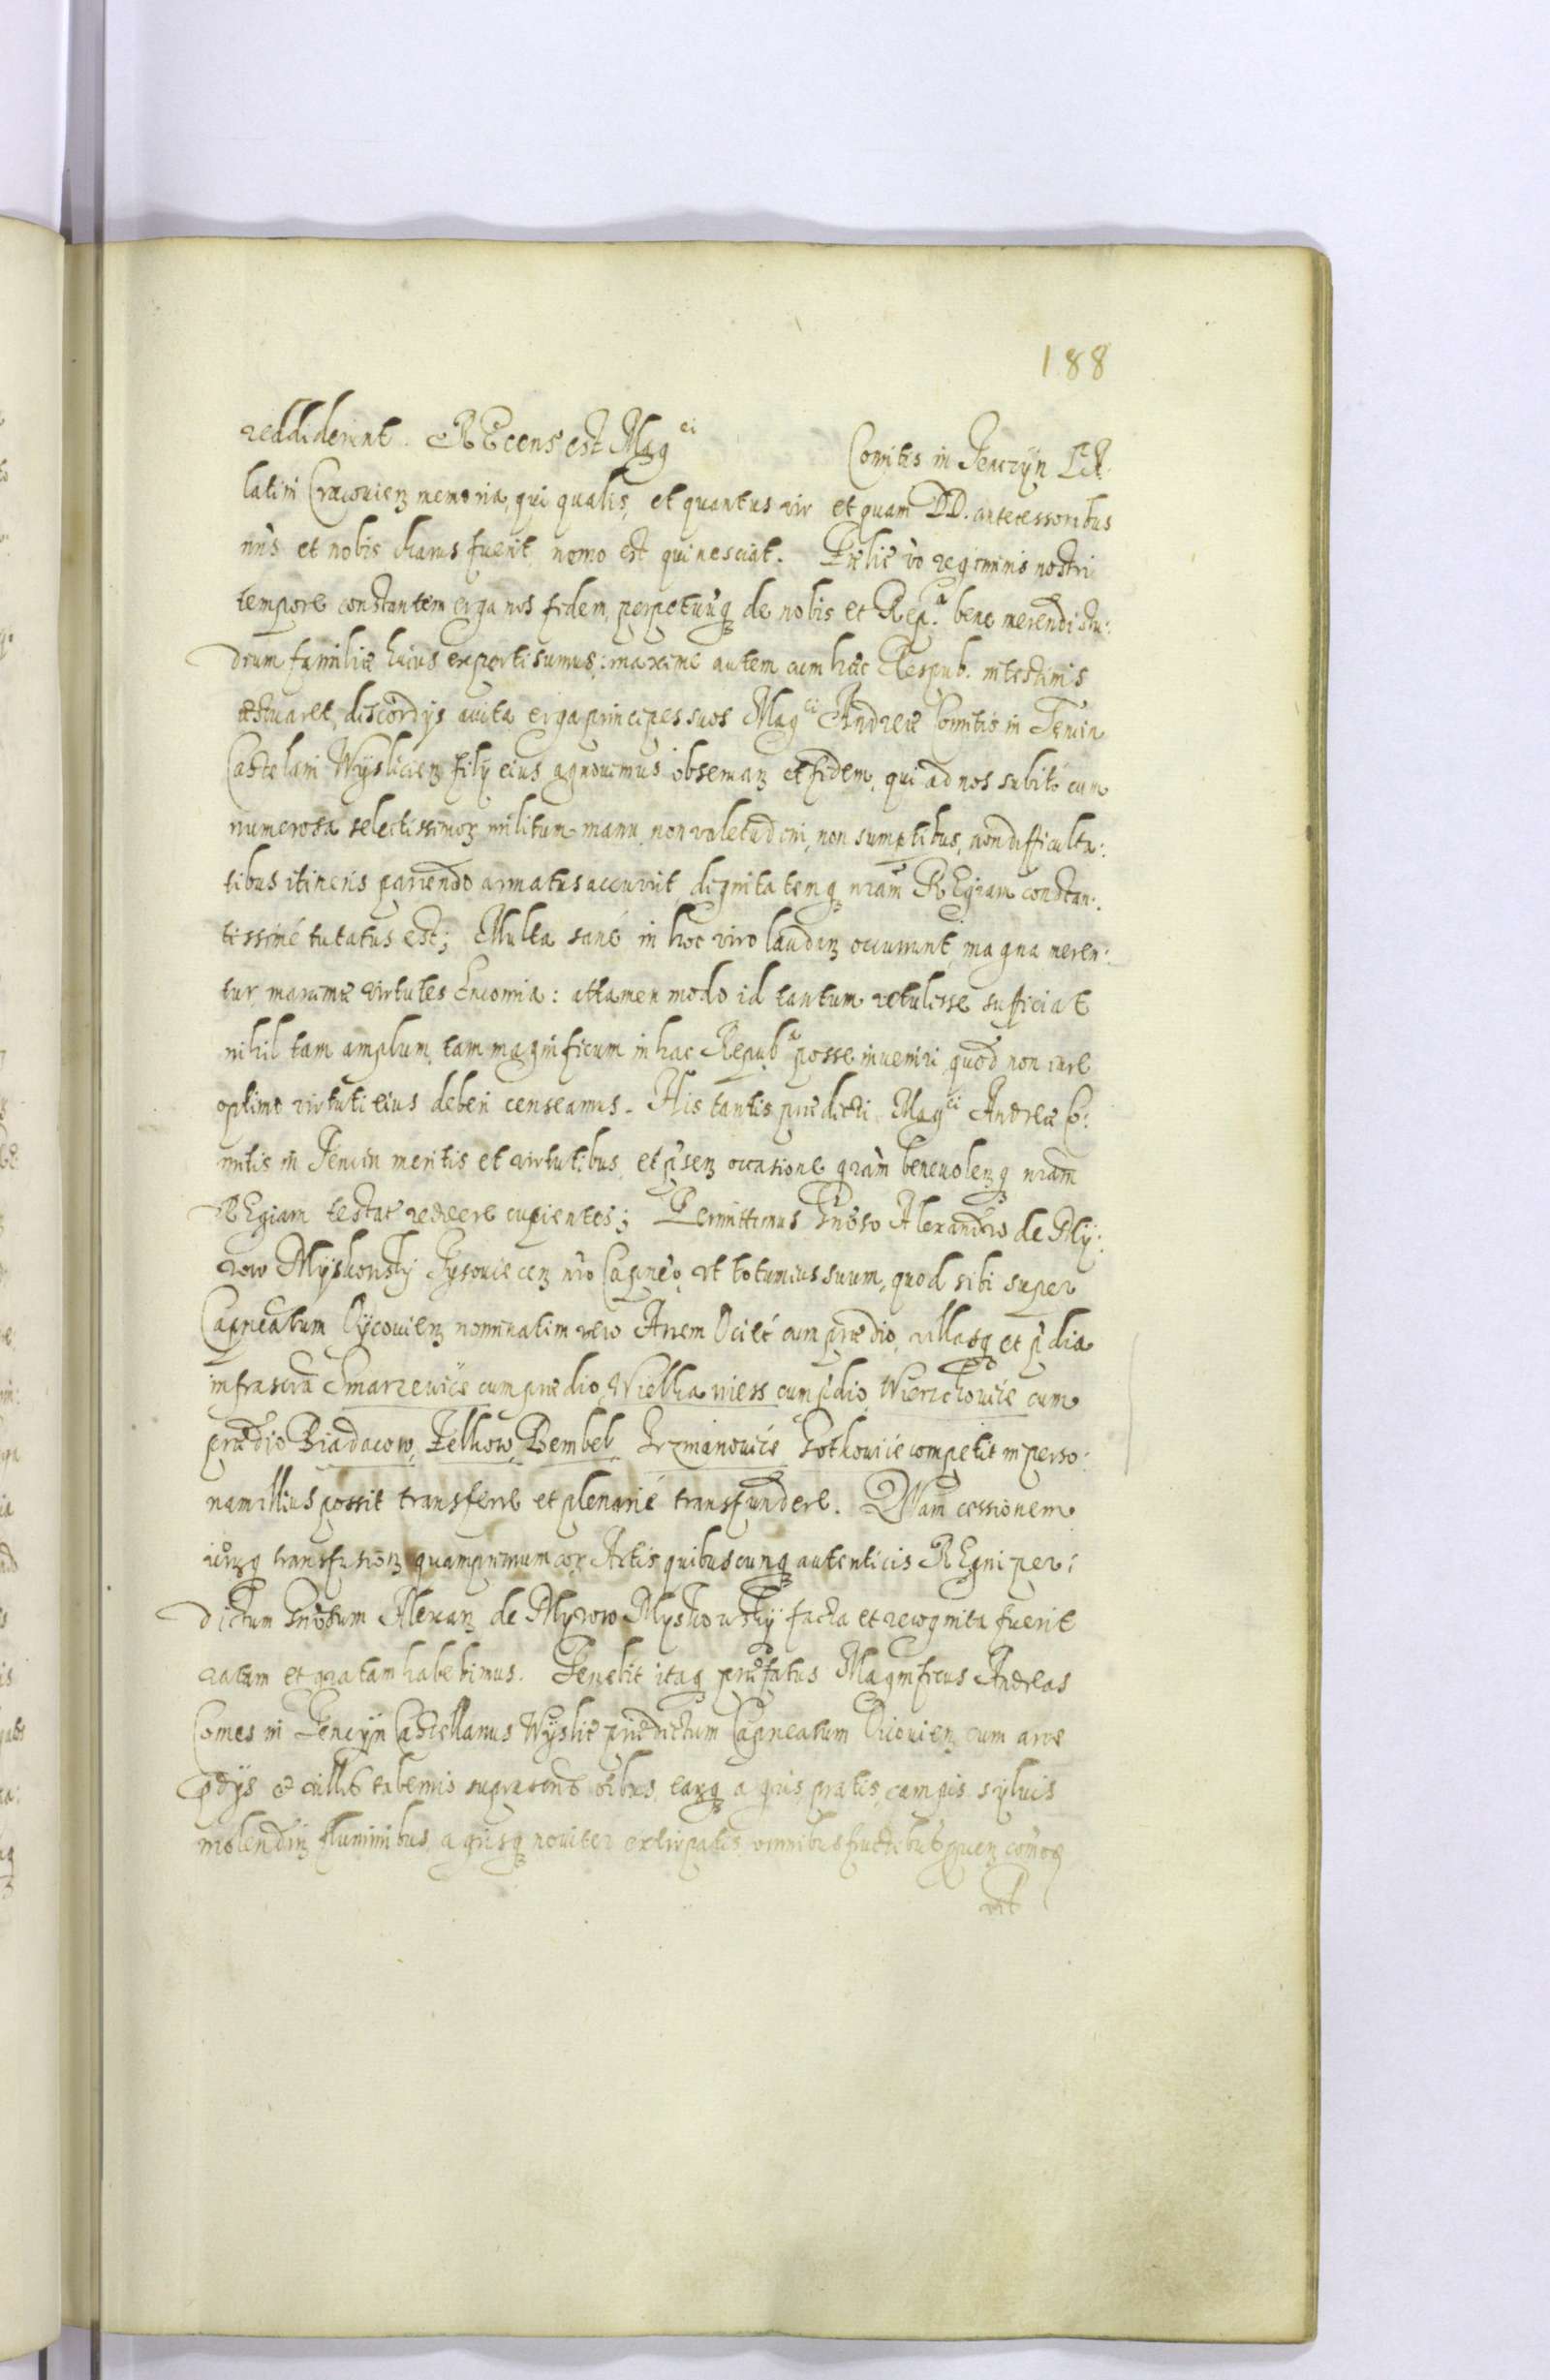 188
reddiderint. REcens est Mag^ci Comitis in Tenczÿn PA:
latini Cracouien memoria, qui qualis, et quantus vir et quam DD. antecessoribus
nr̃is et nobis charus fuerit nemo est qui nesciat. Felic vo regiminis nostri
tempore constantem erga nos fidem, perpetuũq de nobis et Rep.^a bene merendi stu:
dium familiæ huius experti sumus: maxime autem cum hæc Respub. intestinis
æstuaret discordÿs auita erga principes suos Mag^ci Andreæ Comitis in Tencin
Castelani Wÿslicien filÿ eius agnouimus obseruan et fidem, qui ad nos subitò cum
numerosa selectissimor militum manu non valetudini, non sumptibus, non difficulta:
tibus itineris parcendo armatus accurrit dignitatemq nram̃ REgiam constan:
tissimè tutatus est; Multa sanè in hoc viro laudan occurrunt, magna meren:
tur maximæ virtutes Encomia: attamen modo id tantum retulisse sufficiat
nihil tam amplum, tam magnificum in hac Repub^a posse inueniri quod non iure
optimo virtuti eius deberi censeamus. His tantis prædicti Mag^ci Andreæ Co:
mitis in Tencin meritis et virtutibus et p̃sen occasione gram̃ beneuolenq nram̃
REgiam testat reddere cupientes; Permittimus Gñoso Alexandro de Mÿ:
row Mÿskowskÿ Tÿsouiecen nr̃o Capneo, vt totum ius suum, quod sibi super
Capneatum Oÿcouien nominatim vero Arcem Ociec cum prædio, villasq et p̃dia
infrascrã Smarzewice cum prædio, Wielka wiess cum p̃dio, Wierzchowice cum
prædio Biadacow, Zelkow, Bembel, Jrzmanowice Gotkowice competit in perso:
nam illius possit transferre et plenariè transfundere. QVam cessionem
iurq transfusion quamprimum cor Actis quibuscunq autenticis REgni per:
dictum Gnõsum Alexan de Mÿrow Mÿskowskÿ facta et recognita fuerit
ratam et gratam habebimus. Tenebit itaq præfatus Magnificus Andreas
Comes in Tencÿn Castellanus Wÿslic prædictum Capneatum Ociouien cum arce
p̃dÿs et villis tabernis suprascriptis õibus, earq agris, pratis, campis, sÿluis
molendin fluminibus, agrisq nouiter extirpatis, omnibus fructibus